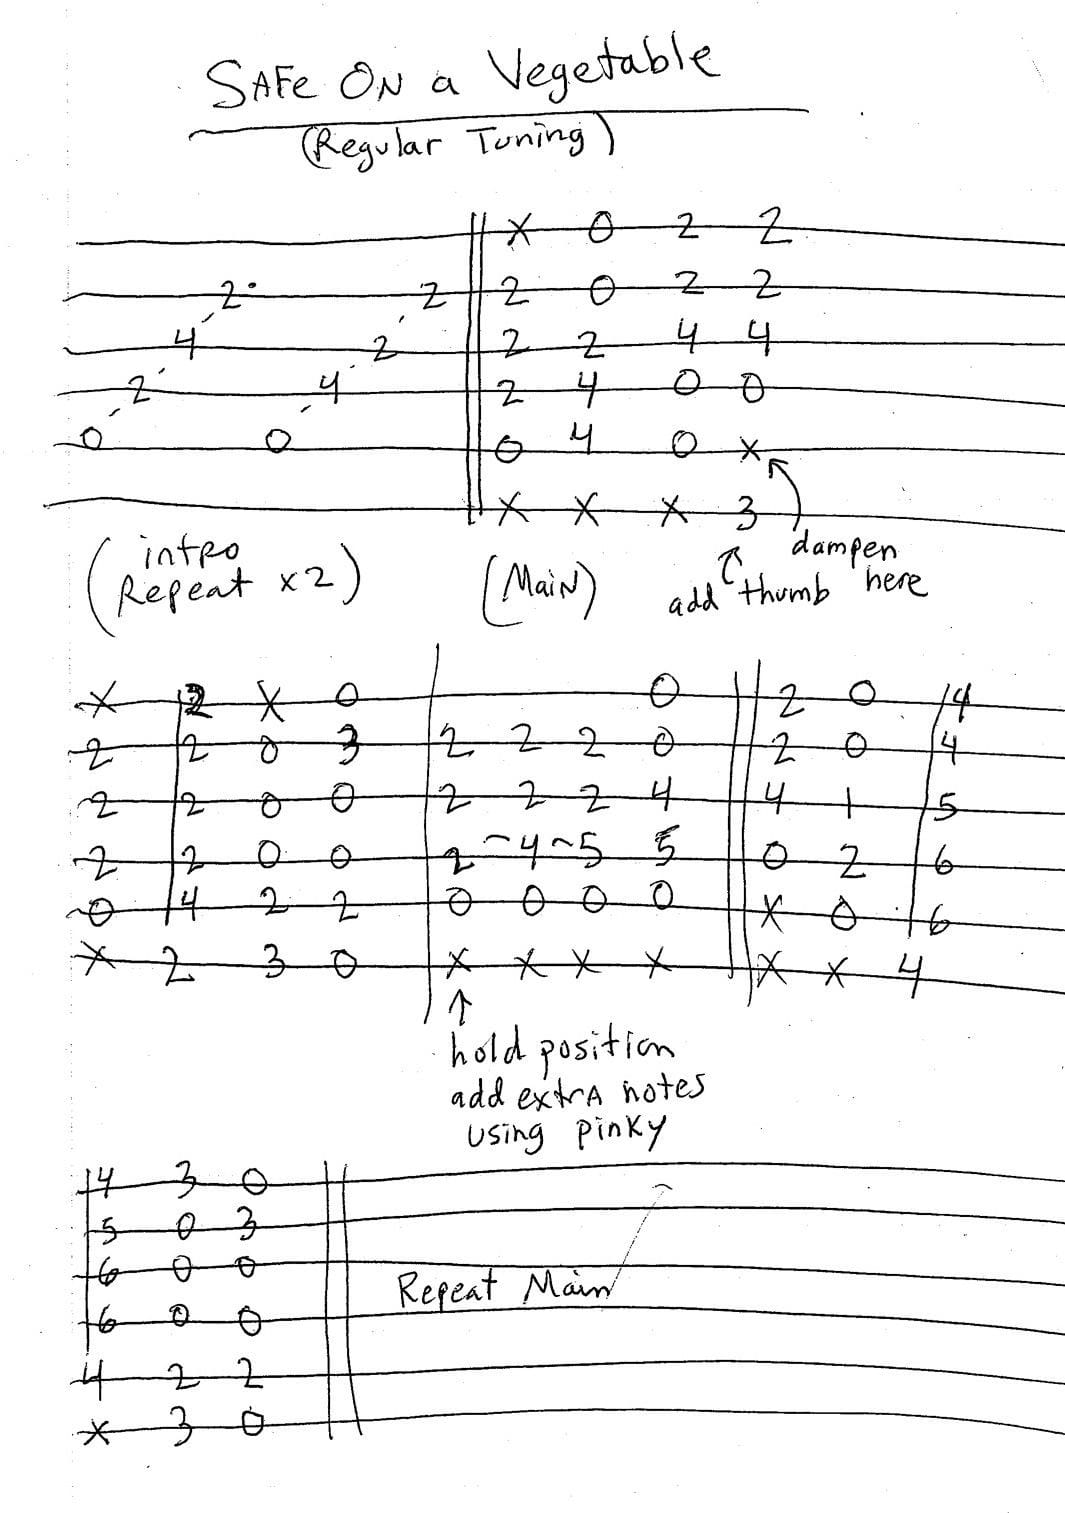 SAFe ON a Vegetable
(Regular Tuning)
X 0 2 2
2 2 2 0 2 2
4 2 2 2 4 4
2 4 2 4 0 0
0 0 0 4 0 X
X X X 3
(intro
Repeat x2)
(Main)
add thumb
dampen
here
X 2 X 0 0 2 0 4
2 2 0 3 2 2 2 0 2 0 4
2 2 0 0 2 2 2 4 4 1 5
2 2 0 0 2~4~5 5 0 2 6
0 4 2 2 0 0 0 0 X 0 6
X 2 3 0 X X X X X X 4
hold position
add extrA notes
using pinky
4 3 0
5 0 3
6 0 0
6 0 0
4 2 2
X 3 0
Repeat Main